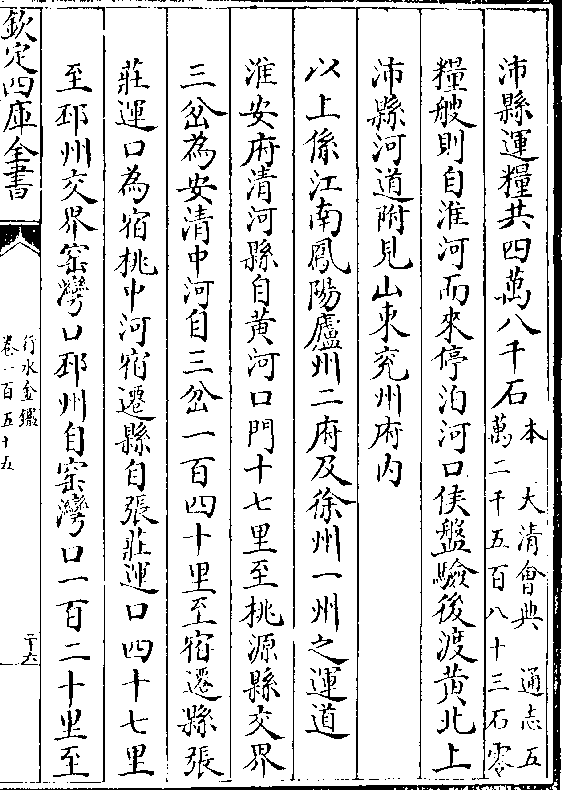 沛縣運糧共四萬八千石本　大清會典　通志五
萬二千五百八十三石零
糧艘則自淮河而來停泊河口俟盤驗後渡黄北上
沛縣河道附見山東兖州府内
以上係江南鳳陽廬州二府及徐州一州之運道
淮安府清河縣自黄河口門十七里至桃源縣交界
三岔為安清中河自三岔一百四十里至宿遷縣張
莊運口為宿桃中河宿遷縣自張莊運口四十七里
至邳州交界窑灣口邳州自窑灣口一百二十里至
欽定四庫全書
行水金鑑
卷一百五十五
二十六